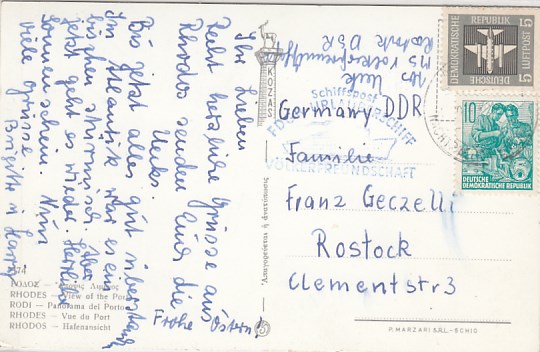 Ihr Lieben
Recht herzliche Grüsse aus
Rhodos senden Euch die
Uecks.
Bis jetzt alles gut überstanden
Im Atlantik war es ein
bisschen stürmisch. Aber
jetzt geht es wieder. Herrlicher
Sonnenschein. Nun
viele Grüsse
Brigitte u Harry
Frohe Ostern!
374
ΡΟΔΟΣ — Άποψις Λιμένος
RHODES — View of the Port
RODI — Panorama del Porto
RHODES — Vue du Port
RHODOS — Hafenansicht
KOZAS
Ἀπαγορεύεται ἡ ἀνατύπωσις
Abs Ueck
MS Völkerfreundschaft
Rostock DSR
Schiffspost
URLAUBERSCHIFF
VÖLKERFREUNDSCHAFT
DEMOKRATISCHE
REPUBLIK
DEUTSCHE
LUFTPOST 15
10
DEUTSCHE
DEMOKRATISCHE REPUBLIK
Germany DDR
Familie
Franz Geczelli
Rostock
Clementstr 3
P. MARZARI S.R.L. - SCHIO